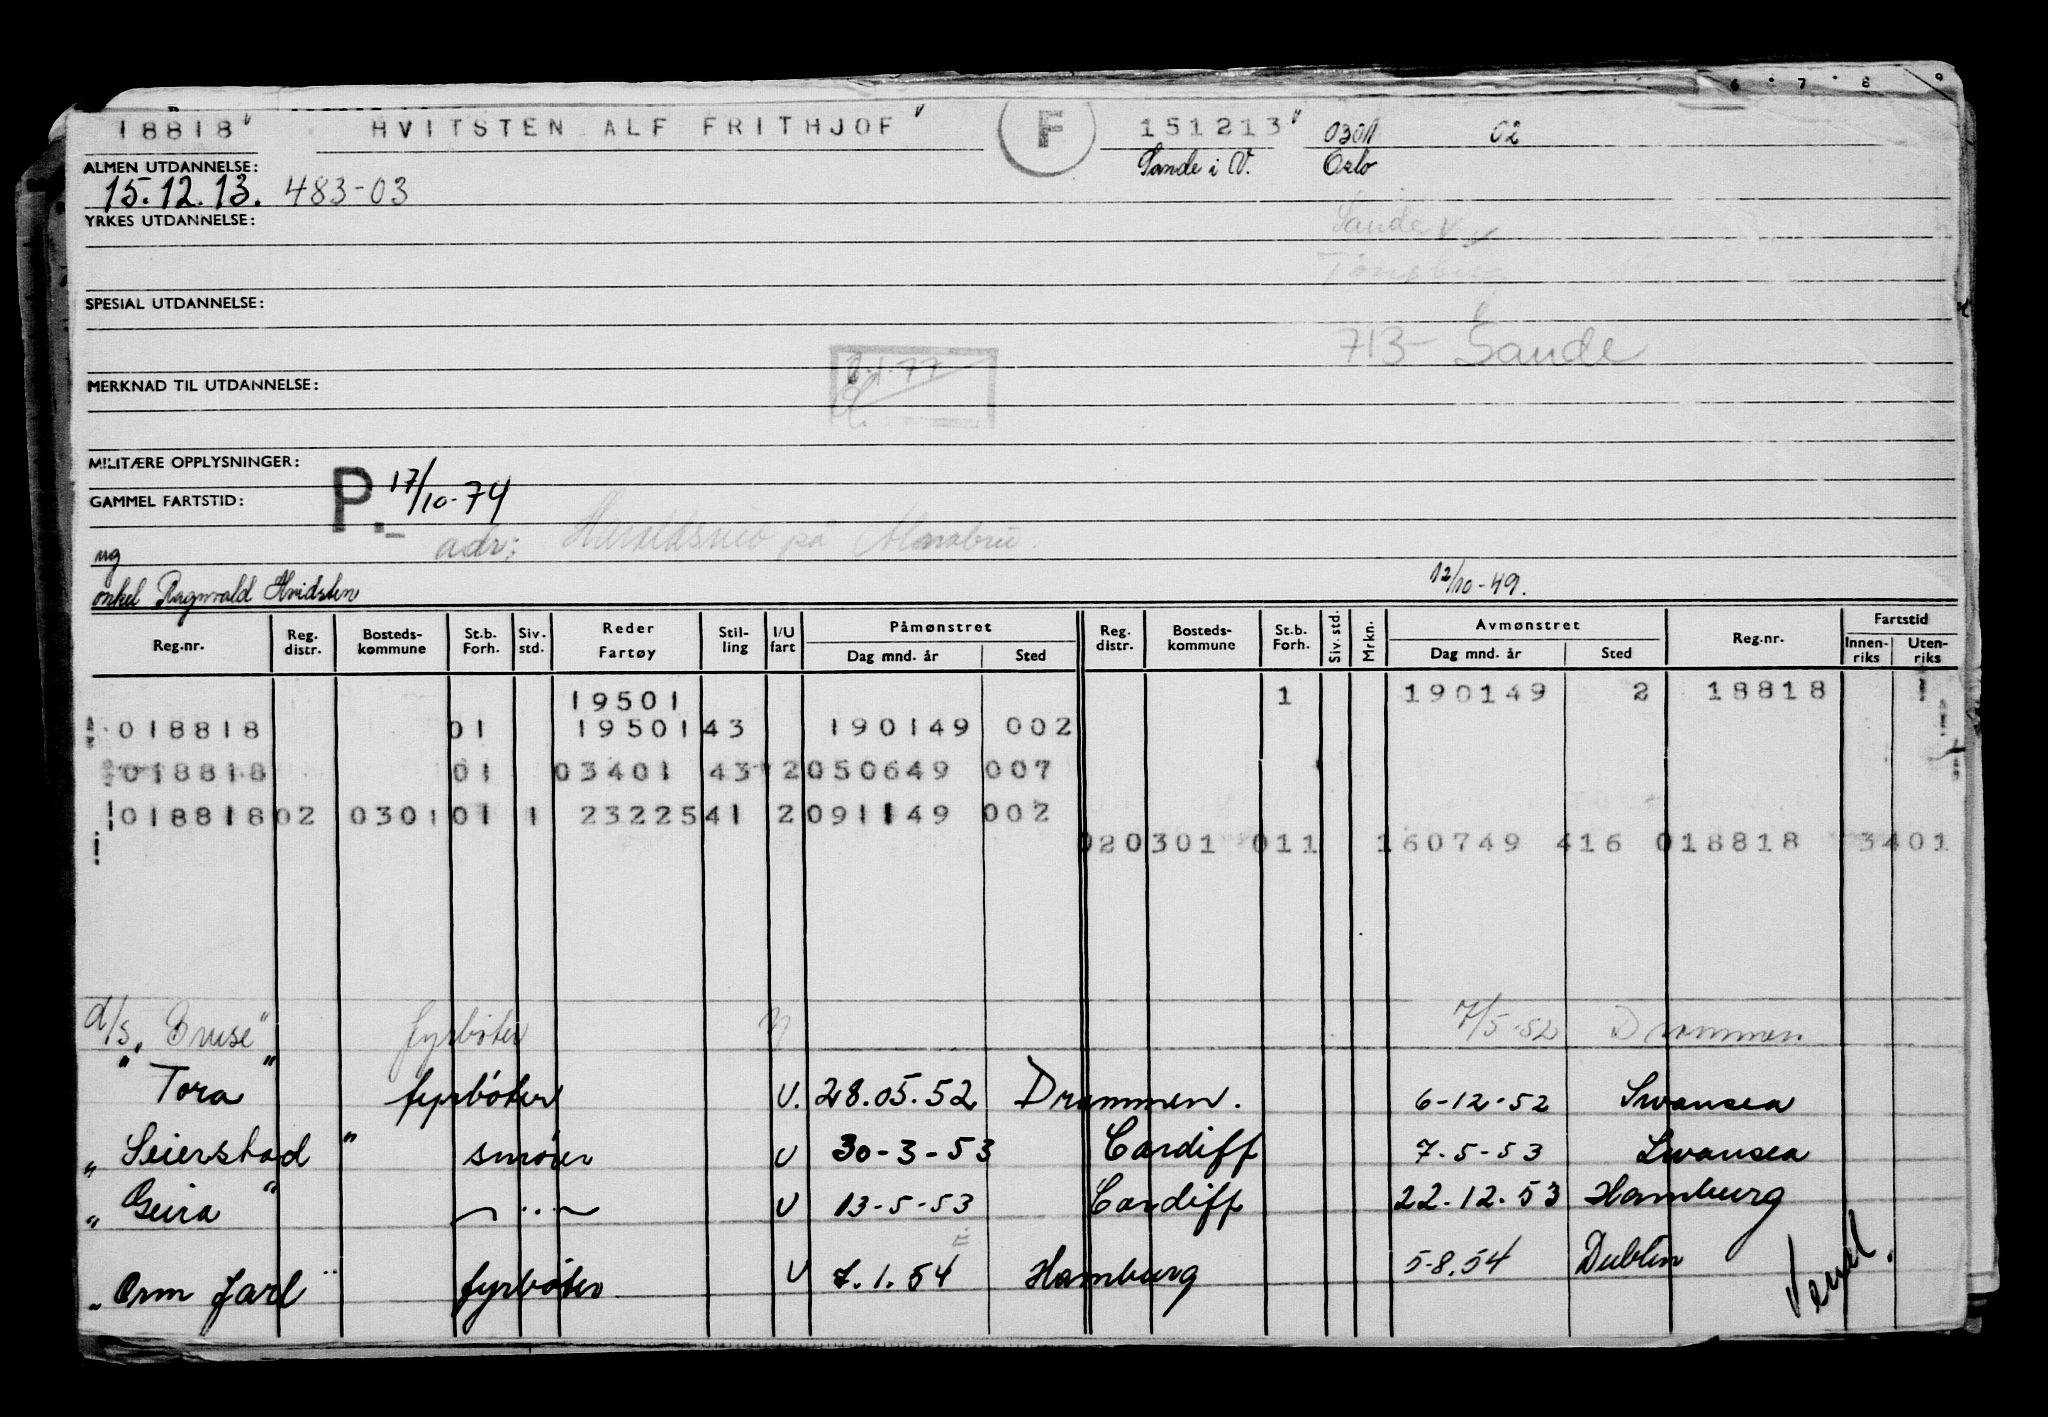 6 7 8 9
18818 v HVITSTEN ALF FRITHJOF v F 151213 v 0301 02
ALMEN UTDANNELSE: Sande i V. Oslo
15.12.13. 483-03
YRKES UTDANNELSE:
Sande V
Tønsberg
SPESIAL UTDANNELSE:
713- Sande
1.77
MERKNAD TIL UTDANNELSE:
MILITÆRE OPPLYSNINGER:
P. 17/10-74
GAMMEL FARTSTID:
adr: på Alnabru.
ug
onkel Ragnvald Hvidsten 12/10-49.
Reg.nr. Reg. distr. Bosteds-kommune St.b. Forh. Siv. std. Reder Fartøy Stil-ling I/U fart Påmønstret Dag mnd. år Sted Reg. distr. Bosteds-kommune St.b. Forh. Siv. std. Mrkn. Avmønstret Dag mnd. år Sted Reg.nr. Fartstid Innen-riks Uten-riks
19501 1 190149 2 18818
018818 01 19501 43 190149 002
018818 01 03401 43 2 050649 007
018818 02 0301 01 1 23225 41 2 091149 002
020301 011 160749 416 018818 3401
d/s "Bruse" fyrbøter N 7/5-52 Drammen
" Tora " fyrbøter U. 28.05.52 Drammen. 6-12-52 Swansea
" Seierstad " smører U 30-3-53 Cardiff 7.5-53 Swansea
" Geira " — " — U 13-5-53 Cardiff 22.12.53 Hamburg
" Orm Jarl " fyrbøter U 7.1.54 Hamburg 5-8.54 Dublin
Vend.